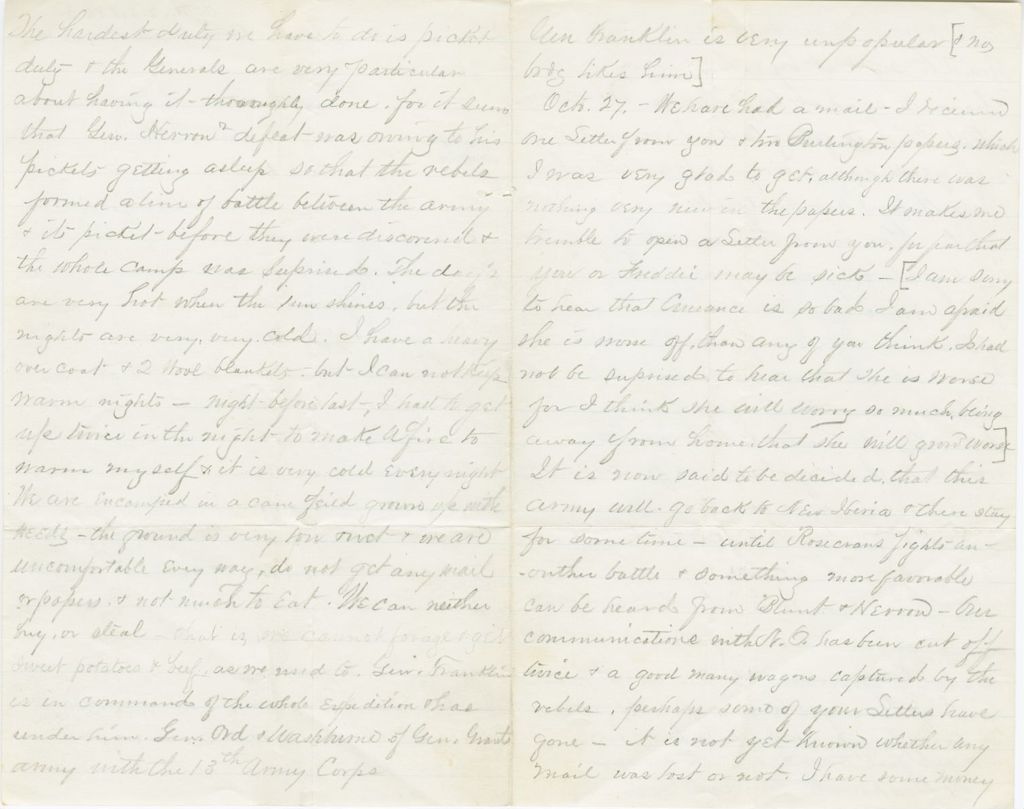 The hardest duty we have to do is picket
duty & the Generals are very particular
about having it thoroughly done. for it seems
that Gen. Herron's defeat was owing to his
pickets getting asleep so that the rebels
formed a line of battle between the army
& its picket before they were discovered &
the whole camp was suprised. The days
are very hot when the sun shines, but the
nights are very, very cold. I have a heavy
over coat & 2 wool blankets - but I can not keep
warm nights — night before last, I had to get
up twice in the night to make a fire to
warm myself & it is very cold every night
We are encamped in a cane feild grown up with
weeds - the ground is very low & wet & we are
uncomfortable every way, do not get any mail
or papers. & not much to eat. We can neither
buy, or steal - that is, we cannot forage & get
sweet potatoes & beef, as we used to. Gen. Franklin
is in command of the whole expedition & has
under him. Gen. Ord & Washburne of Gen. Grants
army with the 13th Army Corps
Gen Franklin is very unpopular [& no
bdg likes him]
Oct. 27. - We have had a mail - I received
one Letter from you & two Burlington papers. which
I was very glad to get, although there was
nothing very new in the papers. It makes me
tremble to open a Letter from you, for fear that
you or Freddie may be sick — [I am sorry
to hear that is so bad I am afraid
she is worse off, than any of you think. I shall
not be suprised to hear that she is worse
for I think she will worry so much, being
away from home, that she will grow worse]
It is now said to be decided, that this
army will go back to New Iberia & there stay
for some time — until Rosecrans fights an-
-outher battle & something more favorable
can be heard from Blunt & Herron - Our
communications with N.O. has been cut off
twice & a good many wagons captured by the
rebels, perhaps some of your Letters have
gone — it is not yet known whether any
mail was lost or not. I have some money